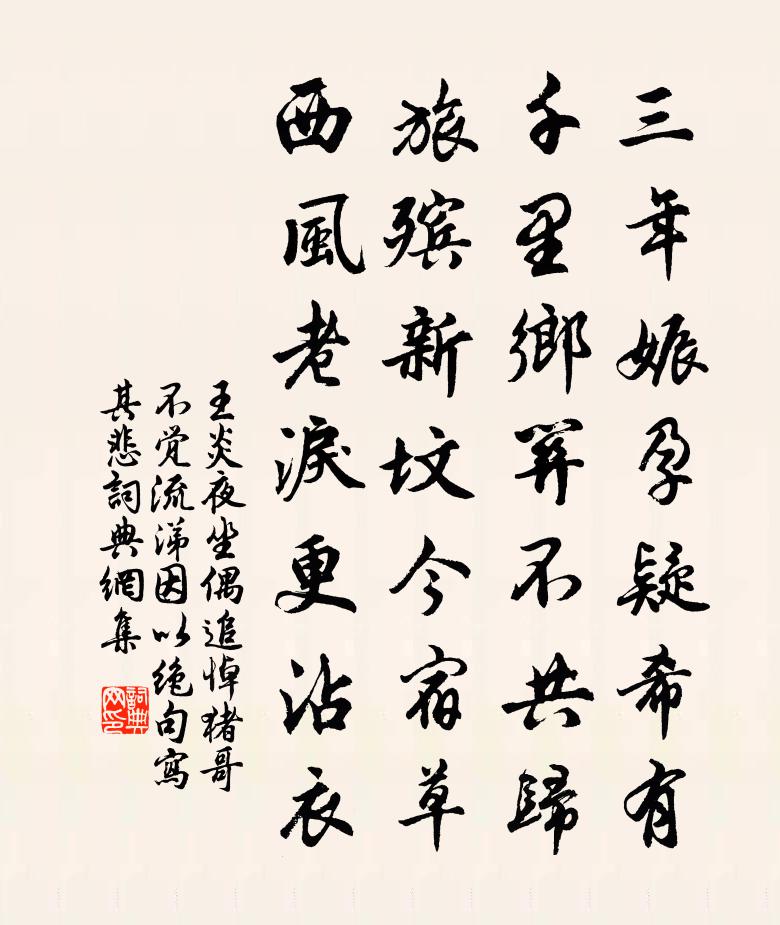 三年娠孕疑希有
千里鄉關不共歸
旅殡新坟今宿草
西風老淚更沾衣
王炎夜坐偶追悼猪哥
不觉流涕因以绝句寫
其悲詞典網集
詞典网印